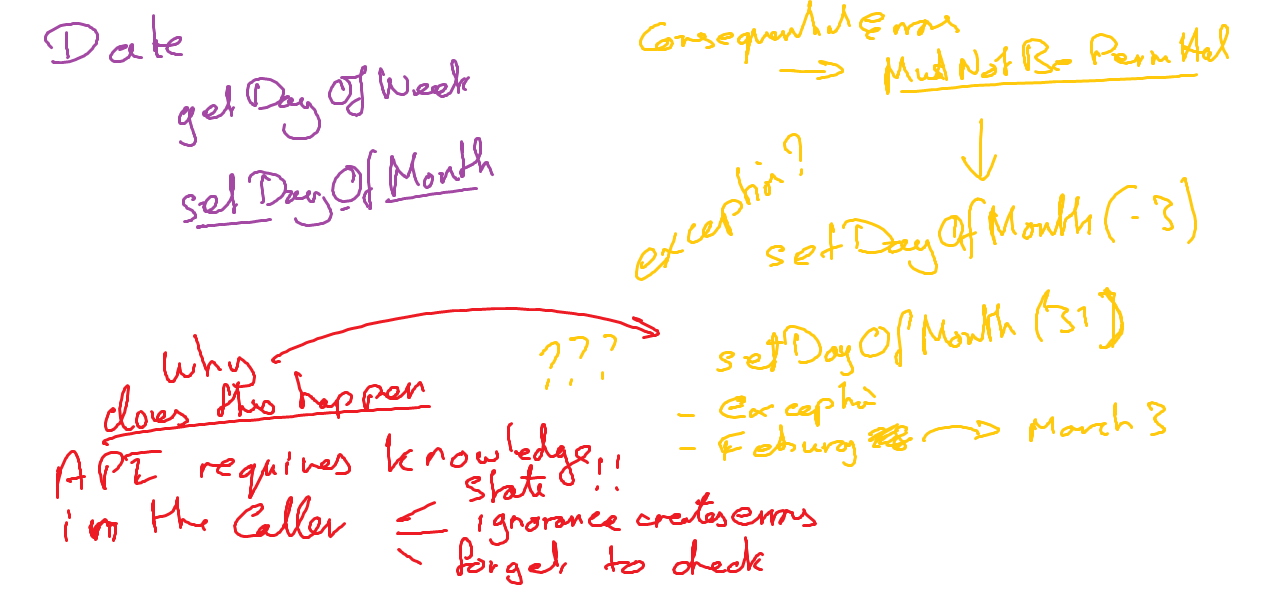 Date
getDayOfWeek
setDayOfMonth
Consequential Errors
Must Not Be Permitted
exception?
setDayOfMonth(-3)
???
setDayOfMonth(31)
- Exception
- Feburary March 3
Why
does this happen
API requires knowledge!!
in the Caller
State
ignorance creates errors
forget to check